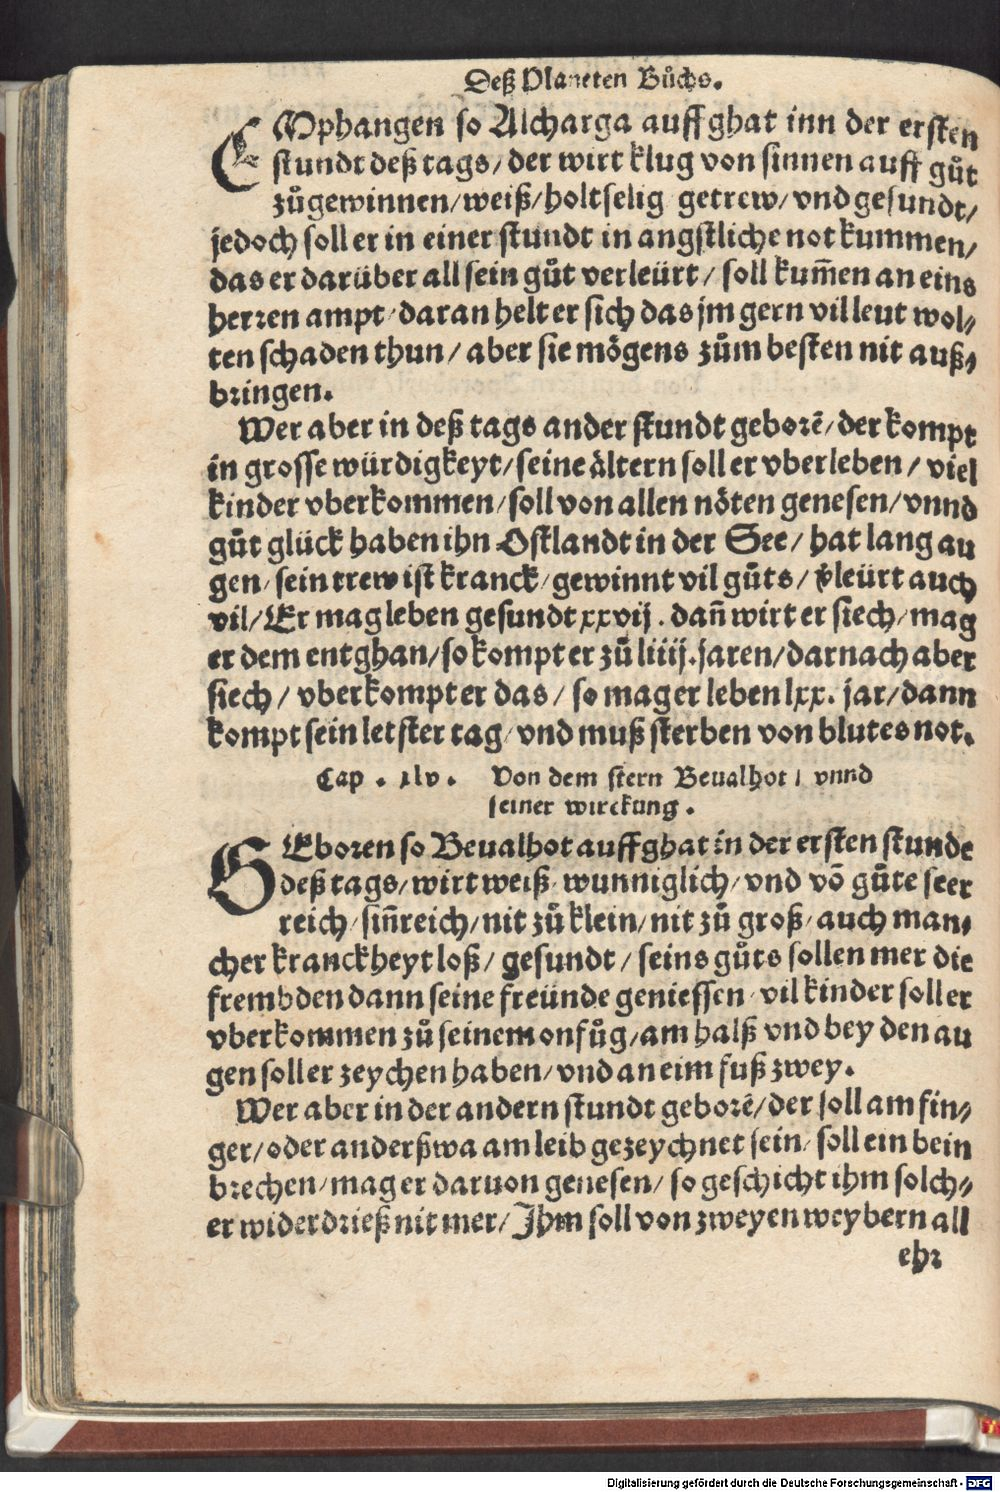 Deß Planeten Bůchs.
EMphangen so Alcharga auff ghat inn der ersten
stundt deß tags/ der wirt klug von sinnen auff gůt
zůgewinnen/ weiß/ holtselig getrew/ vnd gesundt/
jedoch soll er in einer stundt in angstliche not kummen/
das er darüber all sein gůt verleürt/ soll kum̃en an eins
herren ampt/ daran helt er sich das jm gern vil leut wol⸗
ten schaden thun/ aber sie mögens zům besten nit auß⸗
bringen.
Wer aber in deß tags ander stundt geborẽ/ der kompt
in grosse würdigkeyt/ seine ältern soll er vberleben/ viel
kinder vberkommen/ soll von allen nöten genesen/ vnnd
gůt glück haben ihn Ostlandt in der See/ hat lang au
gen/ sein trew ist kranck/ gewinnt vil gůts/ v̈leürt auch
vil/ Er mag leben gesundt xxvij. dañ wirt er siech/ mag
er dem entghan/ so kompt er zů liiij. jaren/ darnach aber
siech/ vberkompt er das/ so mag er leben lxx. jar/ dann
kompt sein letster tag/ vnd muß sterben von blutes not.
Cap. xlv. Von dem stern Beualhot/ vnnd
seiner wirckung.
GEboren so Beualhot auffghat in der ersten stunde
deß tags/ wirt weiß/ wunniglich/ vnd võ gůte seer
reich/ siñreich/ nit zů klein/ nit zů groß/ auch man⸗
cher kranckheyt loß/ gesundt/ seins gůts sollen mer die
frembden dann seine freünde geniessen/ vil kinder soll er
vberkommen zů seinem onfůg/ am halß vnd bey den au
gen soll er zeychen haben/ vnd an eim fuß zwey.
Wer aber in der andern stundt geborẽ/ der soll am fin⸗
ger/ oder anderßwa am leib gezeychnet sein/ soll ein bein
brechen/ mag er daruon genesen/ so geschicht ihm solch⸗
er widerdrieß nit mer/ Jhm soll von zweyen weybern all
ehr
Digitalisierung gefördert durch die Deutsche Forschungsgemeinschaft - DFG